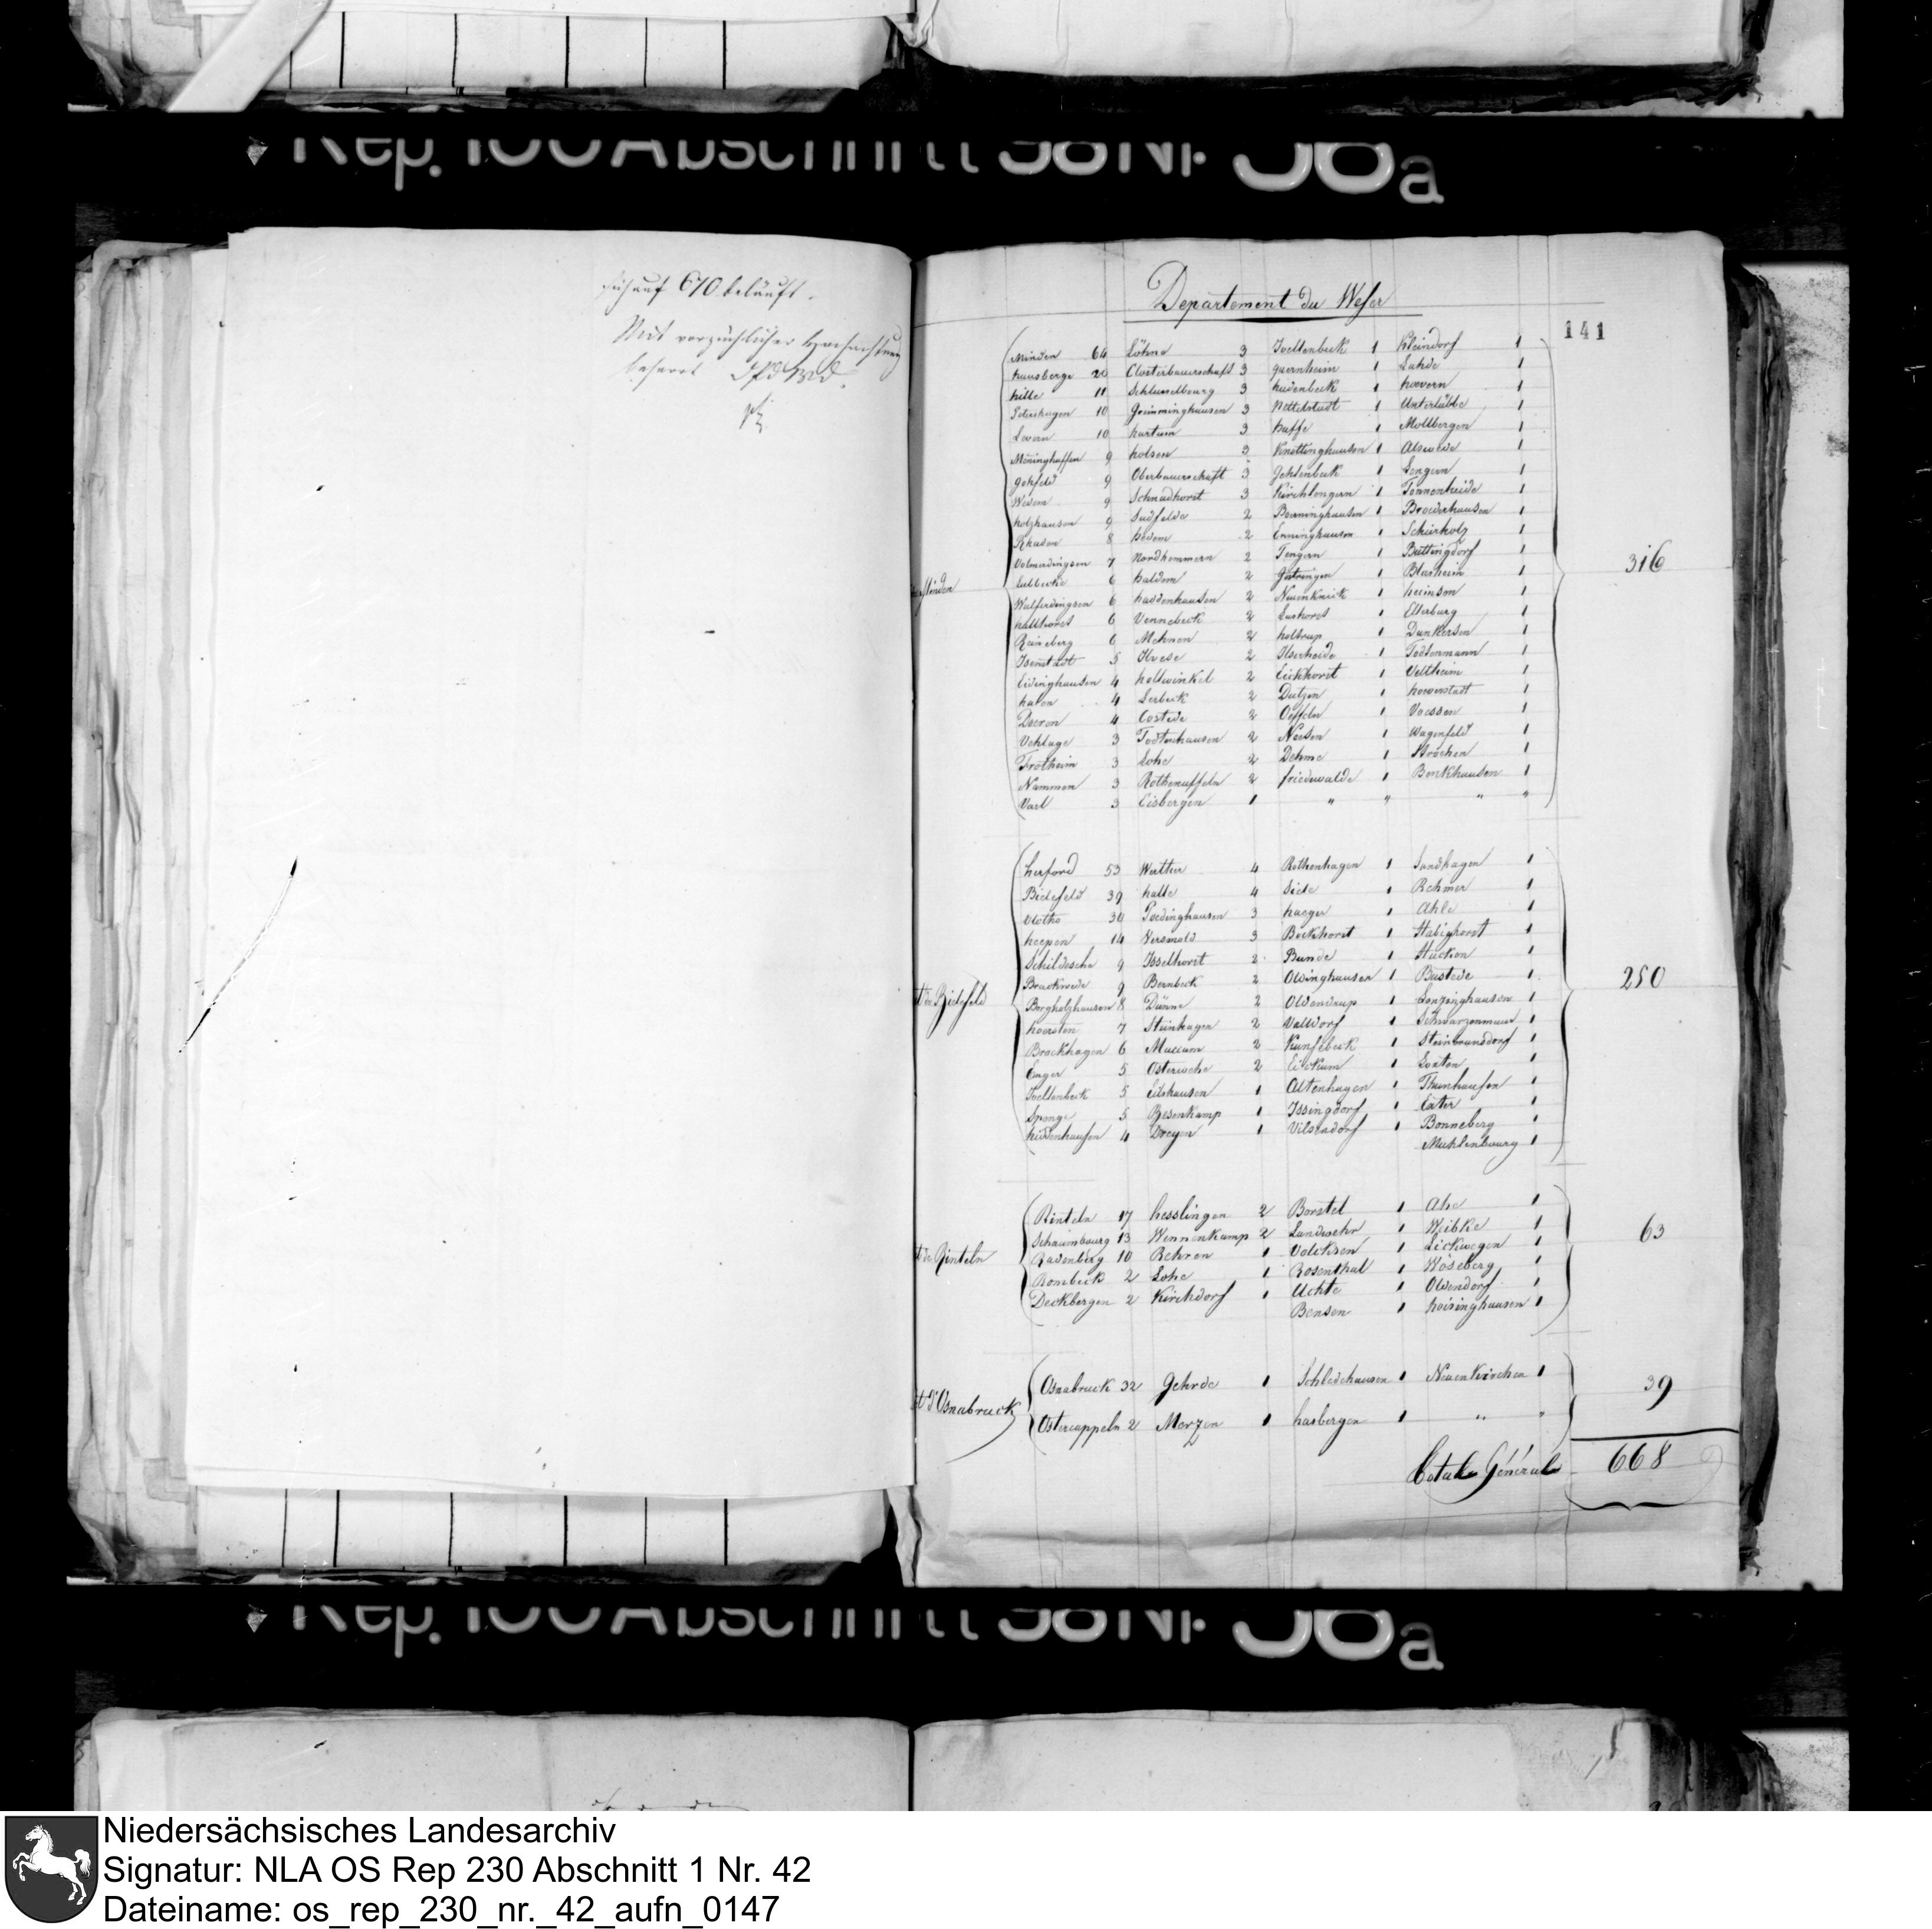 Rep. 100 Abschnitt 38 Nr. 38a
sich auf 670 beläuft.
Mit vorzüglicher Hochachtung
beharret
Departement du Weser
141
Minden 64 Löhne 3 Joellenbeck 1 Kleindorf 1
hausberge 20 Closterbauerschaft 3 quernheim 1 Lahde 1
hille 11 Schlusselbourg 3 hudenbeck 1 hoevern 1
Petershagen 10 Grimminghausen 3 Nettelstadt 1 Unterlübbe 1
Levern 10 hartum 3 haffe 1 Mollbergen 1
Menninghuffen 9 holsen 3 Knettinghausen 1 Alswede 1
gohfeld 9 Oberbauerschaft 3 Gehlenbeck 1 Gengern 1
Wedem 9 Schnadhorst 3 Kirchlengern 1 Tonnenheide 1
holzhausen 9 Sudfelde 2 Boerninghausen 1 Broederhausen 1
Rhaden 8 hedem 2 Enninghausen 1 Schierholz 1
Volmerdingsen 7 Nordhemmern 2 Tengern 1 Buttingdorf 1
Lubbecke 6 haldem 2 Gestringen 1 Blasheim 1
Wulferdingsen 6 haddenhausen 2 Neuenknick 1 heimsen 1
hallhorst 6 Vennebeck 2 Lashorst 1 Ellerburg 1
Reineberg 6 Mehnen 2 holtrup 1 Dankersen 1
Isenstadt 5 Ilvese 2 Ilserheide 1 Todtenmann 1
Eidinghausen 4 holtwinkel 2 Eickhorst 1 Veltheim 1
halen 4 Lerbeck 2 Dutzen 1 hoeverstadt 1
Dueren 4 Costede 2 Oeffeln 1 Voessen 1
Vehlage 3 Todtenhausen 2 Neesen 1 Wagenfeld 1
Frotheim 3 Lohe 2 Dehme 1 Ströhen 1
Nammen 3 Rothenuffeln 2 friedewalde 1 Benkhausen 1
Varl 3 Eisbergen 1 " " " "
Minden
316
herford 53 Werther 4 Rothenhagen 1 Sandhagen 1
Bielefeld 39 halle 4 Siele 1 Rehmer 1
Vlotho 30 Poedinghausen 3 haeger 1 Ahle 1
heepen 14 Versmold 3 Bockhorst 1 Stabighorst 1
Schildesche 9 Isselhorst 2 Bunde 1 Stucken 1
Brackwede 9 Bernbeck 2 Oldinghausen 1 Bustede 1
Borgholzhausen 8 Dünne 2 Oldendrup 1 Lenzinghausen 1
hoersten 7 Steinhagen 2 Valdorf 1 Schwarzenmaur 1
Brockhagen 6 Muccum 2 Kunsebeck 1 Steinbrundsdorf 1
Enger 5 Osterweche 2 Eickum 1 Loxten 1
Joellenbeck 5 Eilshausen 1 Altenhagen 1 Thunhausen 1
Spenge 5 Besenkamp 1 Issingdorf 1 Exter 1
hiddenhausen 4 Dreyen 1 Vilsendorf 1 Bonneberg
Muhlenbourg 1
t de Bielefeld
250
Rinteln 17 hesslingen 2 Borstel 1 Ahe 1
Schaumbourg 13 Wennenkamp 2 Landwehr 1 Weibke 1
Radenberg 10 Rehren 1 Volcksen 1 Lickwegen 1
Rombeck 2 Lohe 1 Rosenthal 1 Wöseberg 1
Deckbergen 2 Kirchdorf 1 Uchte 1 Oldendorf 1
Bensen 1 hoisinghausen 1
t de Rinteln
63
Osnabruck 32 Gehrde 1 Schledehausen 1 Neuenkirchen 1
Ostercappeln 2 Merzen 1 hasbergen 1 " "
t d'Osnabruck
39
Totale Générale 668
Rep. 100 Abschnitt 38 Nr. 38a
Niedersächsisches Landesarchiv
Signatur: NLA OS Rep 230 Abschnitt 1 Nr. 42
Dateiname: os_rep_230_nr._42_aufn_0147